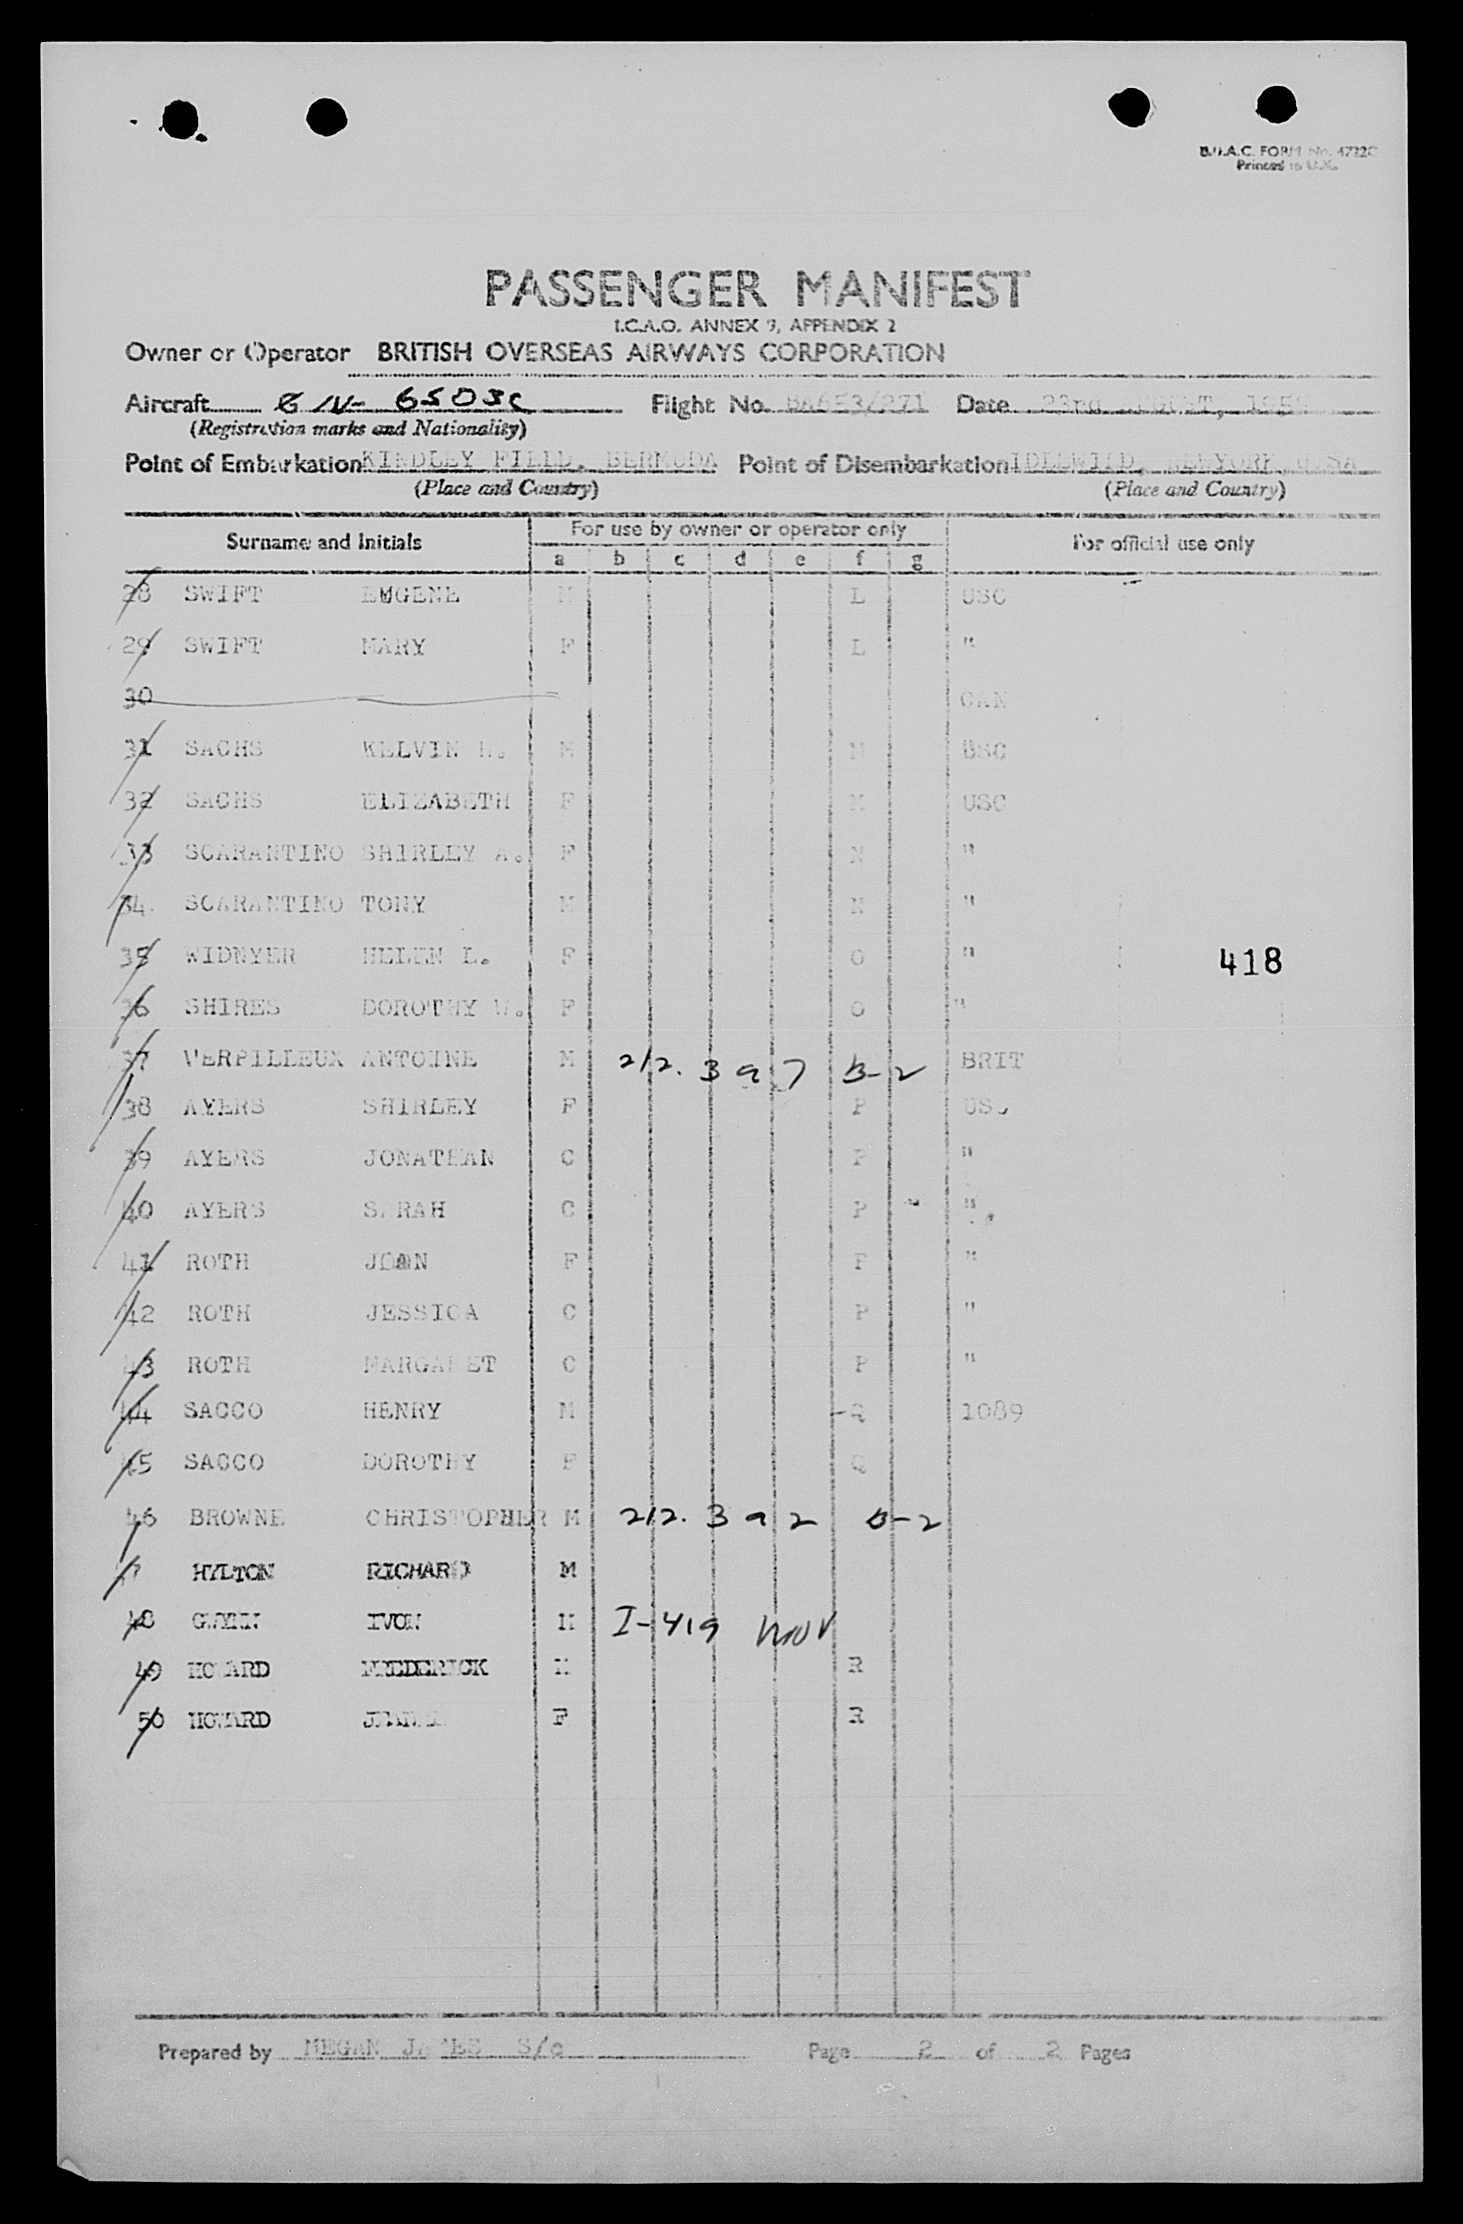 B.O.A.C. FORM No.
Printed in U.K.
PASSENGER MANIFEST
I.C.A.O. ANNEX 9, APPENDIX 2
Owner or Operator BRITISH OVERSEAS AIRWAYS CORPORATION
Aircraft Flight No. BA653/271 Date 23rd AUGUST,
(Registration marks and Nationality)
Point of Embarkation KINDLEY FIELD, BERMUDA Point of Disembarkation IDLEWILD, NEWYORK, USA
(Place and Country) (Place and Country)
Surname and Initials For use by owner or operator only For official use only
a b c d e f g
28 SWIFT EUGENE M L USC
29 SWIFT MARY F L "
30 CAN
31 SACHS KELVIN H. M M USC
32 SACHS ELIZABETH F M USC
33 SCARANTINO SHIRLEY A. F N "
34 SCARANTINO TONY M N "
35 WIDNYER HELEN L. F O "
418
36 SHIRES DOROTHY W. F O "
37 VERPILLEUX ANTOINE M 212. 397 B-2 BRIT
38 AYERS SHIRLEY F P USC
39 AYERS JONATHAN C P "
40 AYERS SARAH C P "
41 ROTH JOAN F P "
42 ROTH JESSICA C P "
43 ROTH MARGARET C P "
44 SACCO HENRY M Q 1089
45 SACCO DOROTHY F Q
46 BROWNE CHRISTOPHER M 212. 392 B-2
47 HYLTON RICHARD M
48 GWYNN IVON M I-419
49 HOWARD FREDERICK M R
50 HOWARD F R
Prepared by MEGAN JAMES S/c Page 2 of 2 Pages